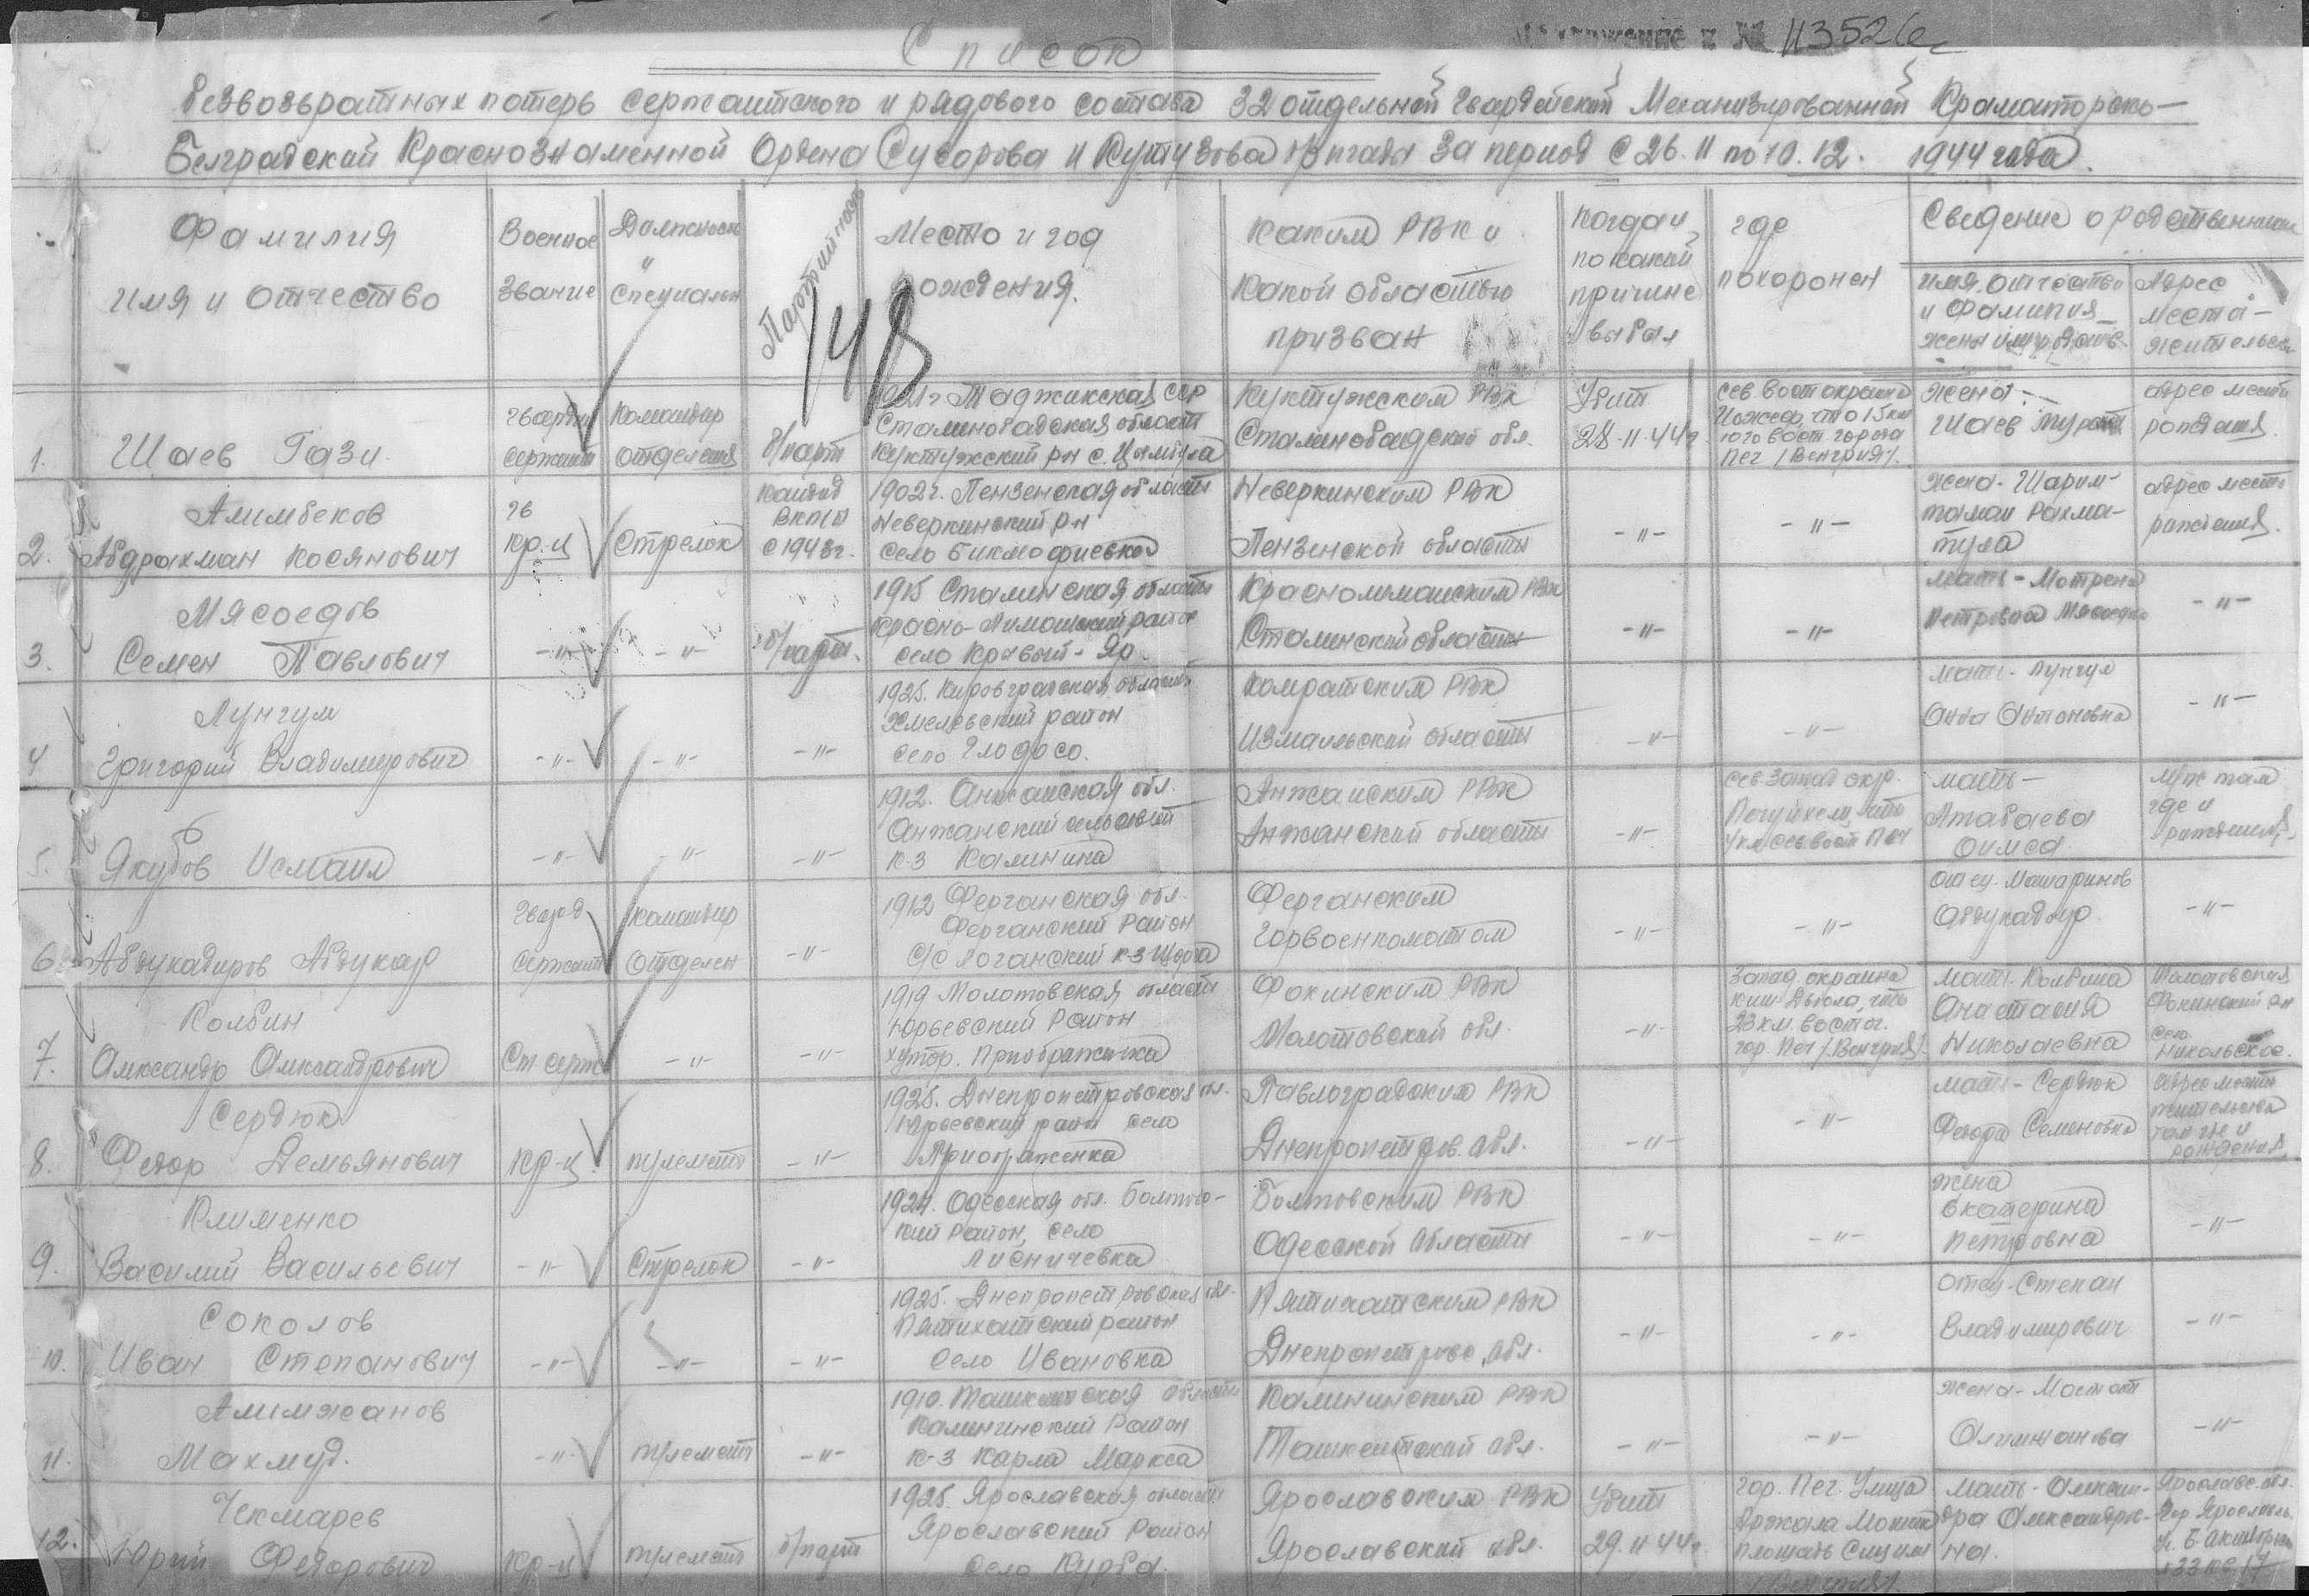 11352 с
Список
безвозвратных потерь сержантского и рядового состава 32 отдельной Гвардейской Механизированной Краматорско-
Белградской Краснознаменной Ордена Суворова и Кутузова бригады за период с 26.11 по 10.12. 1944 года.
Фамилия
имя и отчество
Военное
звание
Должность
и
специальн
Партийность
148
Место и год
рождения.
Каким РВК и
какой областью
призван
Когда и
по какой
причине
выбыл
где
похоронен
Сведение о родственниках
имя, отчество
и фамилия
жены или родств.
Адрес
места-
жительства
1.
Шаев Гази
гвардии
сержант
командир
отделения
б/парт
1921 г Таджикская ССР
Сталинобадская область
Куктужский рн с.
Куктужским РВК
Сталинобадской обл.
Убит
28.11.44г.
сев. вост окраина
что 15 км
юго вост города
Печ (Венгрия).
жена-
Шаев
адрес места
рождения.
2.
Алимбеков
Абдрахман Косянович
гв
кр-ц
Стрелок
кандид
ВКП(б)
с 1943г.
1902г. Пензенская область
Неверкинский рн
село Бикмосфиевка
Неверкинским РВК
Пензенской области
-"-
-"-
жена-Шарим-
Рахма-
тула
адрес места
рождения.
3.
Мясоедов
Семен Павлович
-"-
-"-
б/парт.
1915 Сталинская область
Красно-Лиманский район
село Кривый-Яр
Краснолиманским РВК
Сталинской области
-"-
-"-
мать-Мотрена
Петровна Мясоедова
-"-
4
Лунгул
Григорий Владимирович
-"-
-"-
-"-
1925. Кировградская область
Хмелевский район
село Глодосо.
Комратским РВК
Измаильской области
-"-
-"-
мать-Лунгул
Анна Антоновна
-"-
5.
Якубов Исмаил
-"-
-"-
-"-
1912. Анжанская обл.
Анжанский сельсовет
к-з Калинина
Анжанским РВК
Анжанской области
-"-
сев. запад окр.
4 км сев. вост Печ
мать-
Атабаева
Оимса
там
где и
рождения
6.
Абдукадиров Абдукар
гвард
сержант
командир
отделен
-"-
1912 Ферганская обл.
Ферганский Район
с/с Логанский к-з
Ферганским
Горвоенкоматом
-"-
-"-
отец-Машаринов
Абдукадыр
-"-
7.
Колбин
Александр Александрович
Ст. серж
-"-
-"-
1919 Молотовская область
Юрьевский Район
хутор.
Фокинским РВК
Молотовской обл.
-"-
Запад. окраина
Дьюла, что
23 км. вост.
гор. Печ (Венгрия).
мать-Колбина
Анастасия
Николаевна
Молотовская
Фокинский рн
село
Никольское.
8.
Сердюк
Федор Демьянович
кр-ц
пулеметч
-"-
1925. Днепропетровская обл.
Юрьевский район село
Преображенка
Павлоградским РВК
Днепропетров. обл.
-"-
-"-
мать-Сердюк
Федора Семеновна
адрес места
жительства
там же и
рождения.
9.
Клименко
Василий Васильевич
-"-
Стрелок
-"-
1924. Одесская обл. Балтов-
ский район, село
Лисничевка
Болтовским РВК
Одесской области
-"-
-"-
жена
Екатерина
Петровна
-"-
10.
Соколов
Иван Степанович
-"-
-"-
-"-
1925. Днепропетровская обл.
Пятихатский район
село Ивановка
Пятихатским РВК
Днепропетровс. обл.
-"-
-"-
отец-Степан
Владимирович
-"-
11.
Алимжанов
Махмуд.
-"-
пулеметч
-"-
1910. Ташкентская область
Калининский Район
к-з Карла Маркса
Калининским РВК
Ташкентской обл.
-"-
-"-
жена-
Олимжанова
-"-
12.
Чекмарев
Юрий Федорович
кр-ц
пулеметч
б/парт
1925. Ярославская область
Ярославский район
село Курба.
Ярославским РВК
Ярославской обл.
Убит
29.11.44г.
гор. Печ. Улица
площадь
(Венгрия).
мать-Алексан-
дра Александров-
на.
Ярославс. обл.
гор Ярославль